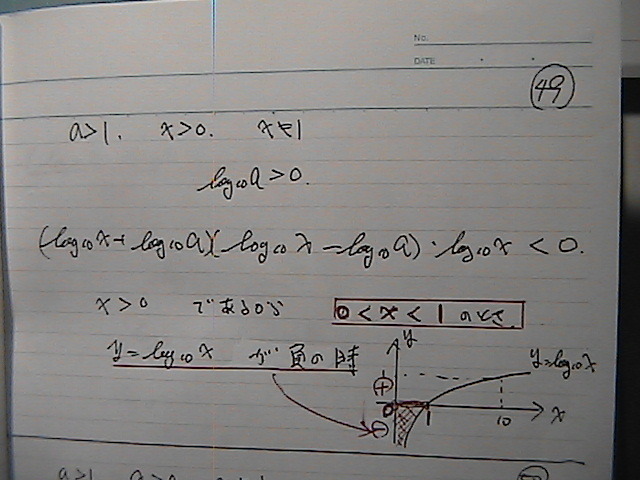 No.
DATE
49
a>1. x>0. x≠1
log₁₀a>0.
(log₁₀x+log₁₀a)(log₁₀x-log₁₀a)・log₁₀x<0.
x>0 であるから 0<x<1 のとき.
y=log₁₀x が 負の時
y
y=log₁₀x
⊕
0 1 10 x
⊖
a>1